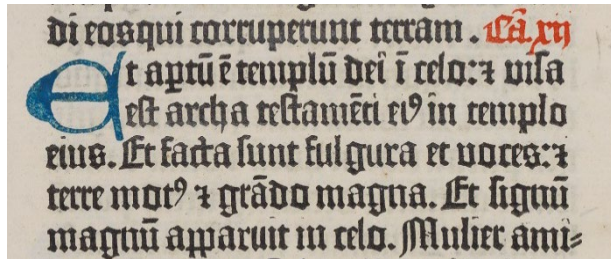 di eos qui corruperunt terram . Ca̅ xij
Et aptū ē templū dei ī celo: ⁊ visa
est archa testamēti eiꝰ in templo
eius. Et facta sunt fulgura et voces: ⁊
terre motꝰ ⁊ grādo magna. Et signū
magnū apparuit in celo. Mulier ami⸗